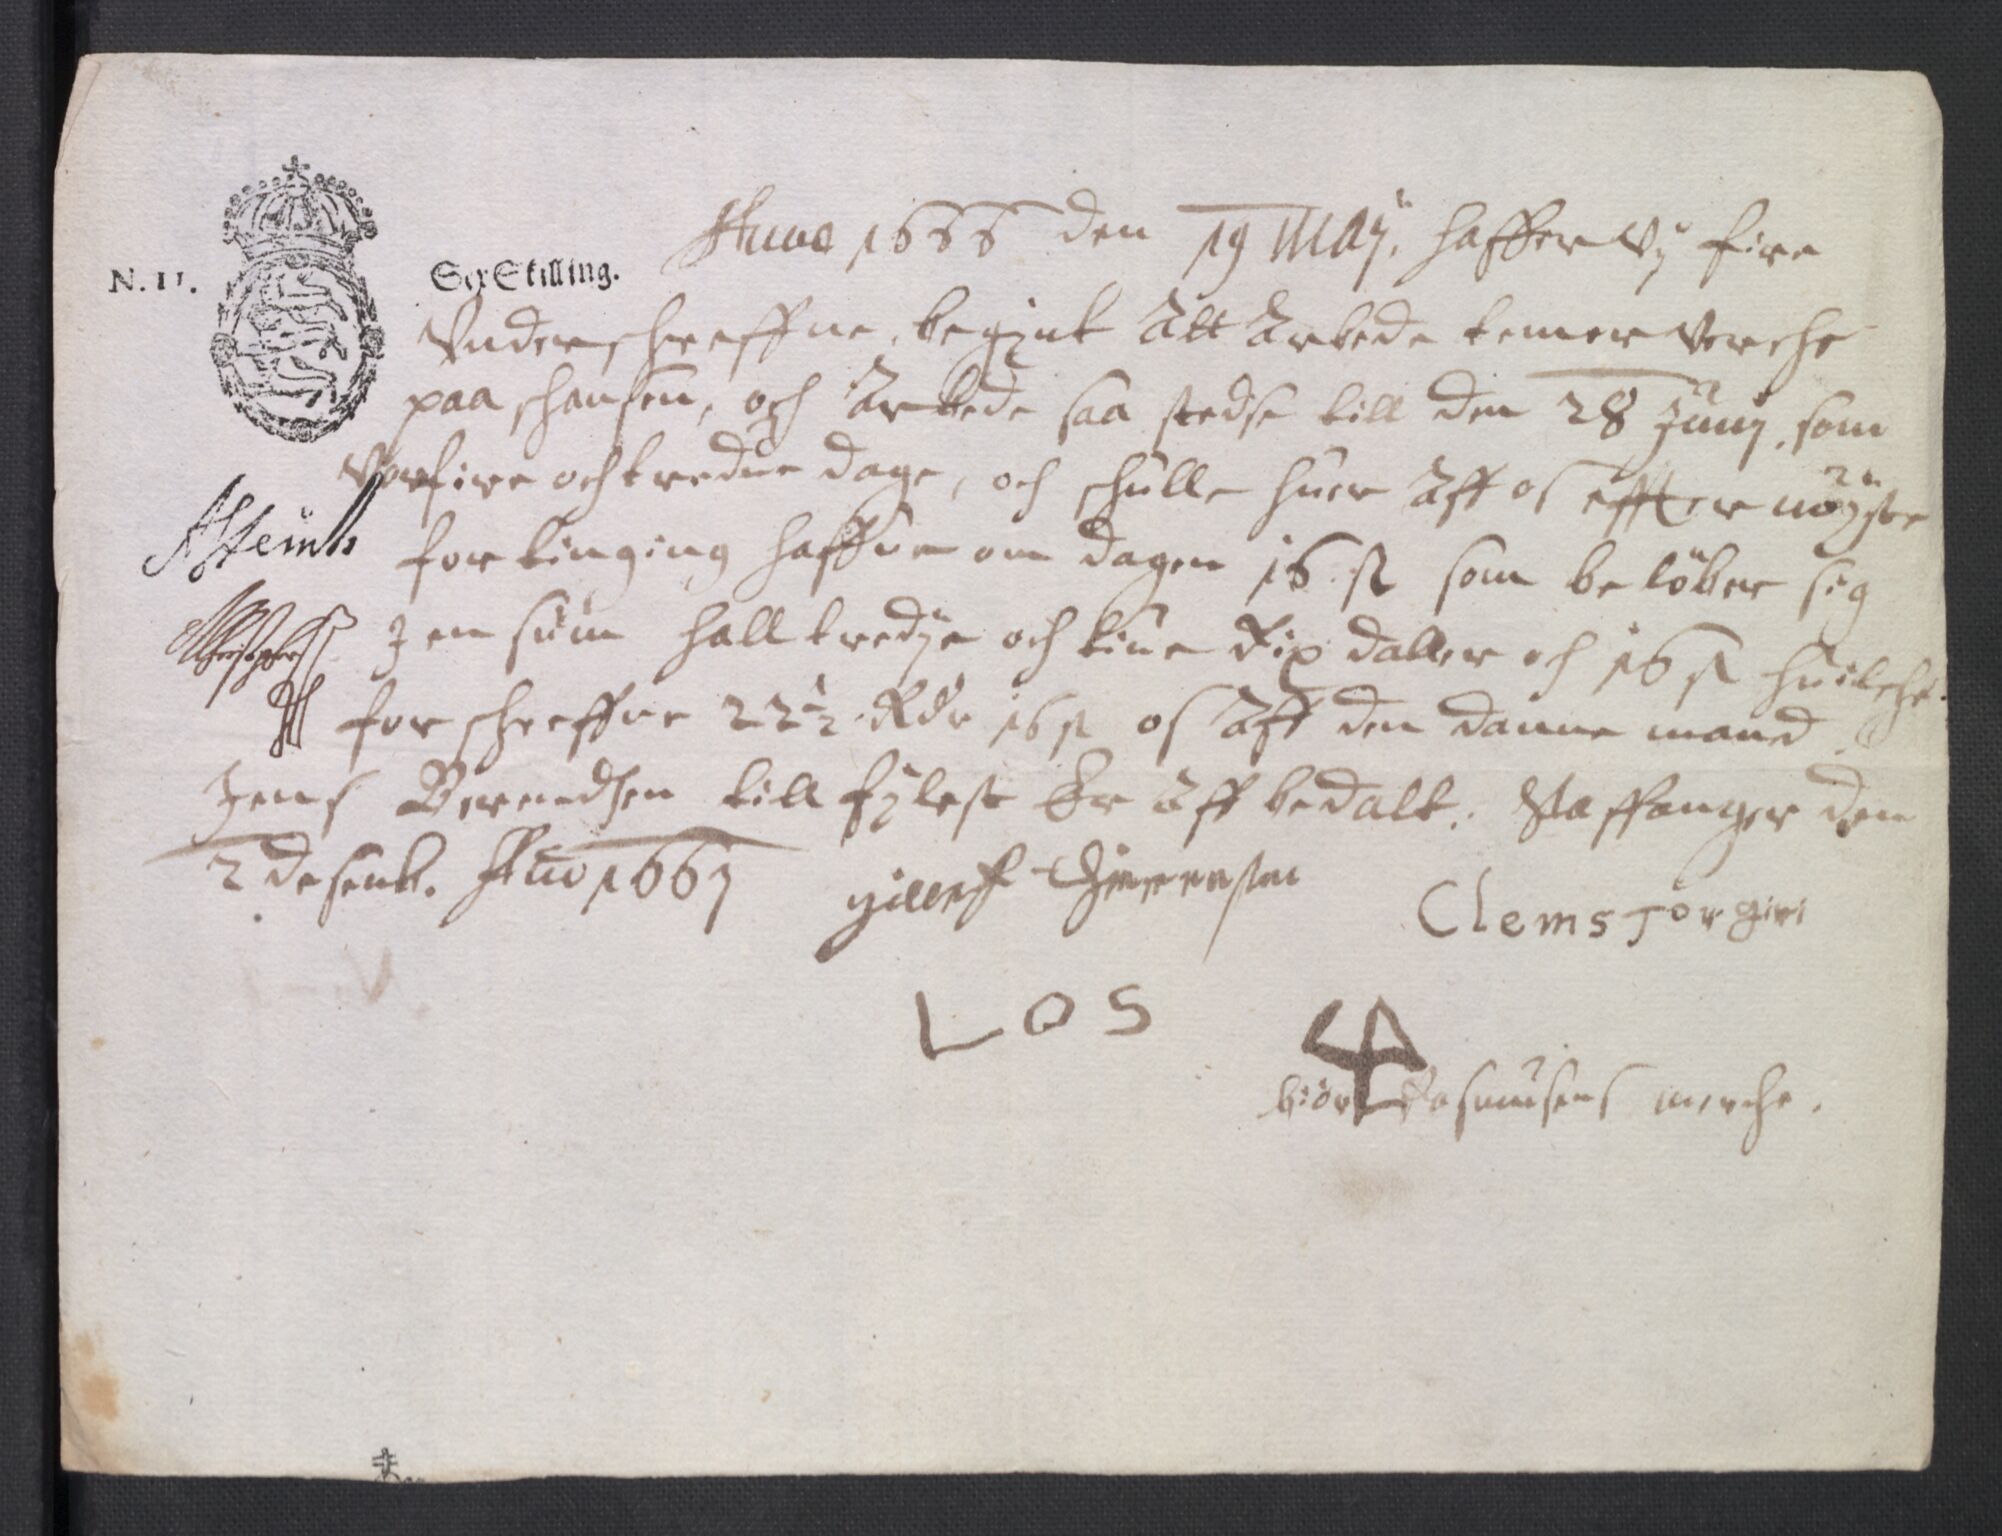 N. 11.
Sex Skilling.
Anno 1666 den 19 Maij, haffuer Vÿ fire
Vnderschreffne, begÿnt Att Arbede temer Verche
paa schansen, och Arbede saa stedse till den 28 Junj, som
Var fire och tredue dage, och schulle huer Aff os effter nöyste
for tinging haffue om dagen 16 ß som be löber sig
J en sum hall tredÿe och tiue Rix daller och 16 ß huilche
for schreffne 22½ Rdr 16 ß os Aff den danne mand
Jens Berendsen till fÿlest Er Aff bedalt. Staffanger den
2 desemb. Anno 1667
Clems Jörgin
L O S
biör Rasmusens merche.